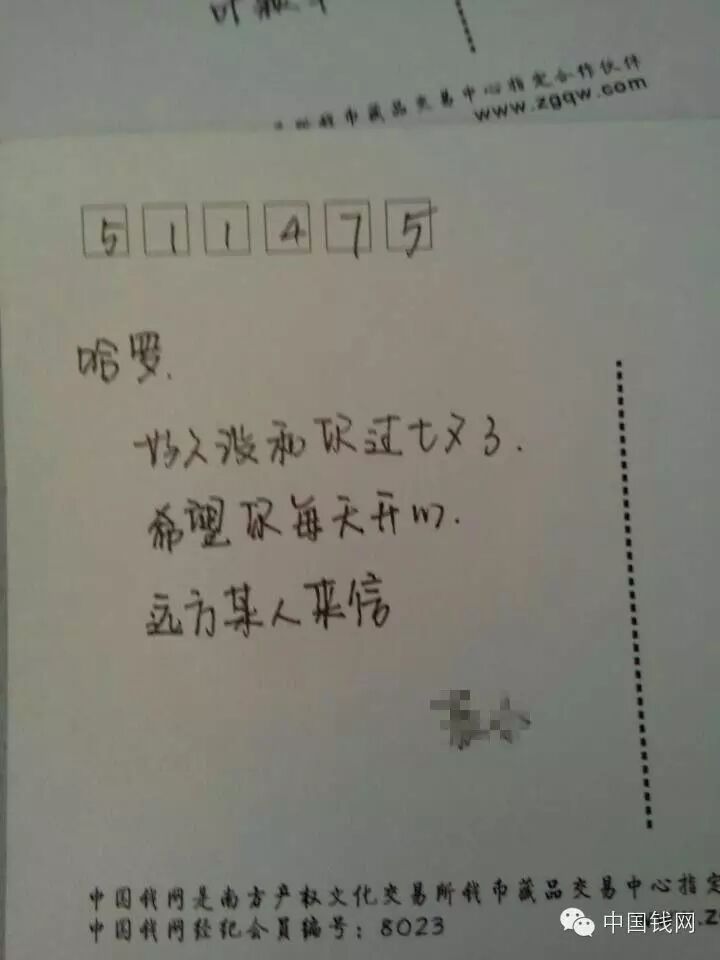 中国钱币藏品交易中心指定合作伙伴
www.zgqw.com
511475
哈罗.
好久没和联过七夕了.
希望你每天开心.
远方某人来信
中国钱网是南方产权文化交易所钱币藏品交易中心指定
中国钱网经纪会员编号：8023
中国钱网